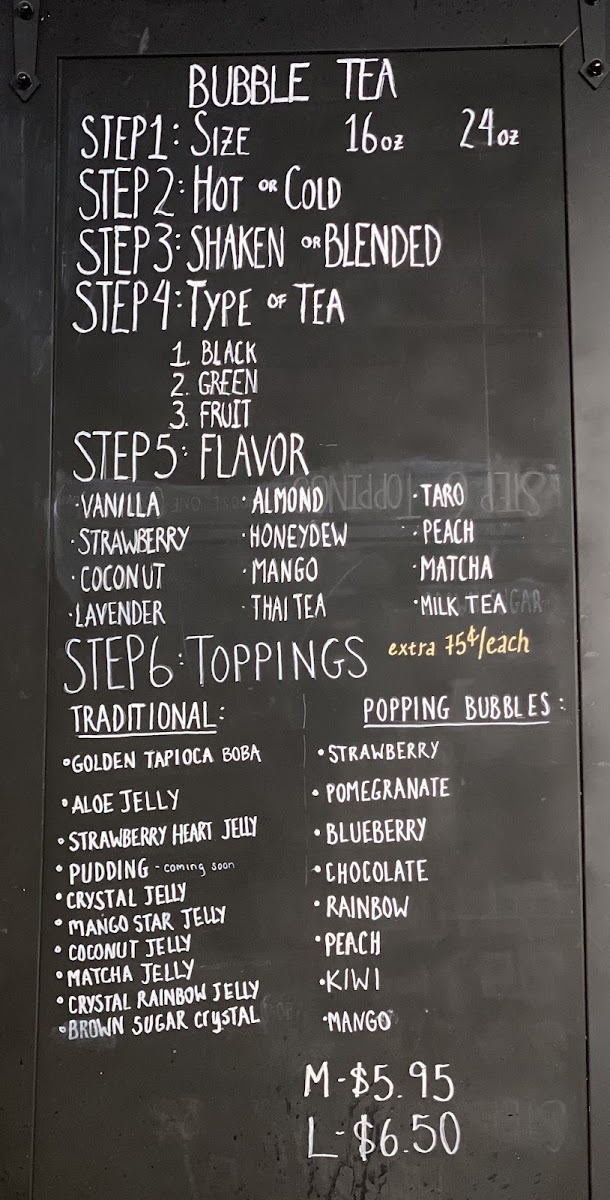 BUBBLE TEA
STEP1: SIZE 16oz 24oz
STEP2: HOT OR COLD
STEP3: SHAKEN OR BLENDED
STEP4: TYPE OF TEA
1. BLACK
2. GREEN
3. FRUIT
STEP5: FLAVOR
·VANILLA ·ALMOND ·TARO
·STRAWBERRY ·HONEYDEW ·PEACH
·COCONUT ·MANGO ·MATCHA
·LAVENDER ·THAI TEA ·MILK TEA
STEP6: TOPPINGS extra 75¢/each
TRADITIONAL:
•GOLDEN TAPIOCA BOBA
•ALOE JELLY
•STRAWBERRY HEART JELLY
•PUDDING - coming soon
•CRYSTAL JELLY
•MANGO STAR JELLY
•COCONUT JELLY
•MATCHA JELLY
•CRYSTAL RAINBOW JELLY
•BROWN SUGAR CrySTAL
POPPING BUBBLES:
•STRAWBERRY
•POMEGRANATE
•BLUEBERRY
•CHOCOLATE
•RAINBOW
•PEACH
•KIWI
•MANGO
M-$5.95
L-$6.50